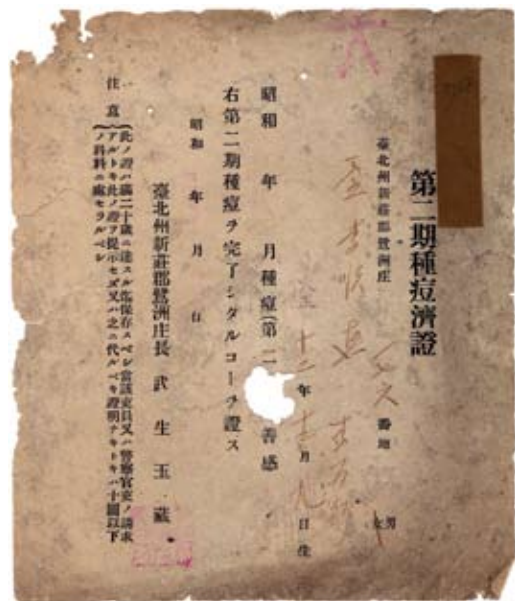 第二期種痘濟證
臺北州新莊郡鷺洲庄 番地
男
女
年 月 日生
昭和 年 月種痘(第二 善感
右第二期種痘ヲ完了シタルコーヲ證ス
昭和 年 月 日
臺北州新莊郡鷺洲庄長 武生玉藏
注意
此ノ證ハ滿二十歲ニ達スル迄保存スベシ當該吏員又ハ警察官吏ノ請求
アルトキ此ノ證ヲ提示セズ又ハ之ニ代ルベキ證明ナキトキハ十圓以下
ノ科料ニ處セラルベシ